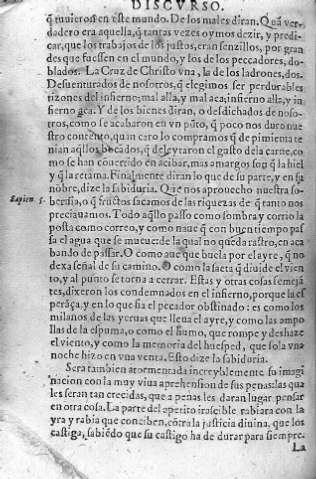 DISCVRSO.
q̃ muieron en este mundo. De los males diran. Quã ver
dadero era aquella, q̃ tantas vezes oymos dezir, y predi-
car, que los trabajos de los justos, eran senzillos, por gran
des que fuessen en el mundo, y los de los peccadores, do-
blados. La Cruz de Christo vna, la de los ladrones, dos.
Desuenturados de nosotros, q̃ elegimos ser perdurables
tizones del infierno; mal alla, y mal aca, infierno alla, y in
fierno aca. Y de los bienes diran, o desdichados de noso-
tros, como se acabaron en vn pũto, q̃ poco nos duro nue
stro contẽto, quan caro lo compramos q̃ de pimienta te
nian aq̃llos bocados, q̃ deleytaron el gusto dela carne, co
mo se han conuertido en acibar, mas amargos son q̃ la hiel
y q̃ la retama. Finalmente diran lo que de su parte, y en su
nõbre, dize la sabiduria. Que nos aprouecho nuestra so-
Sapien 5.
beruia, o q̃ fructos sacamos de las riquezas de q̃ tanto nos
preciauamos. Todo aq̃llo passo como sombra y como la
posta como correo, y como naue q̃ con buen tiempo pas
sa el agua que se mueue: de la qual no queda rastro, en aca
bando de passar. O como aue que buela por el ayre, q̃ no
dexa señal de su camino. O como la saeta q̃ diuide el vien
to, y al punto se torna a cerrar. Estas y otras cosas semejã
tes, dixeron los condemnados en el infierno, porque la es
perãça, y en lo que fia el pecador obstinado: es como los
milanos de las yeruas que lleua el ayre, y como las ampo
llas de la espuma, o como el humo, que rompe y deshaze
el viento, y como la memoria del huesped, que sola vna
noche hizo en vna venta. Esto dize la sabiduria.
Sera tambien atormentada increyblemente su imagi
nacion con la muy viua aprehension de sus penas: las qua
les seran tan crecidas, que a penas les daran lugar pensar
en otra cosa. La parte del apetito irascible rabiara con la
yra y rabia que conciben, cõtra la justicia diuina, que los
castiga, sabiẽdo que su castigo ha de durar para siempre.
La